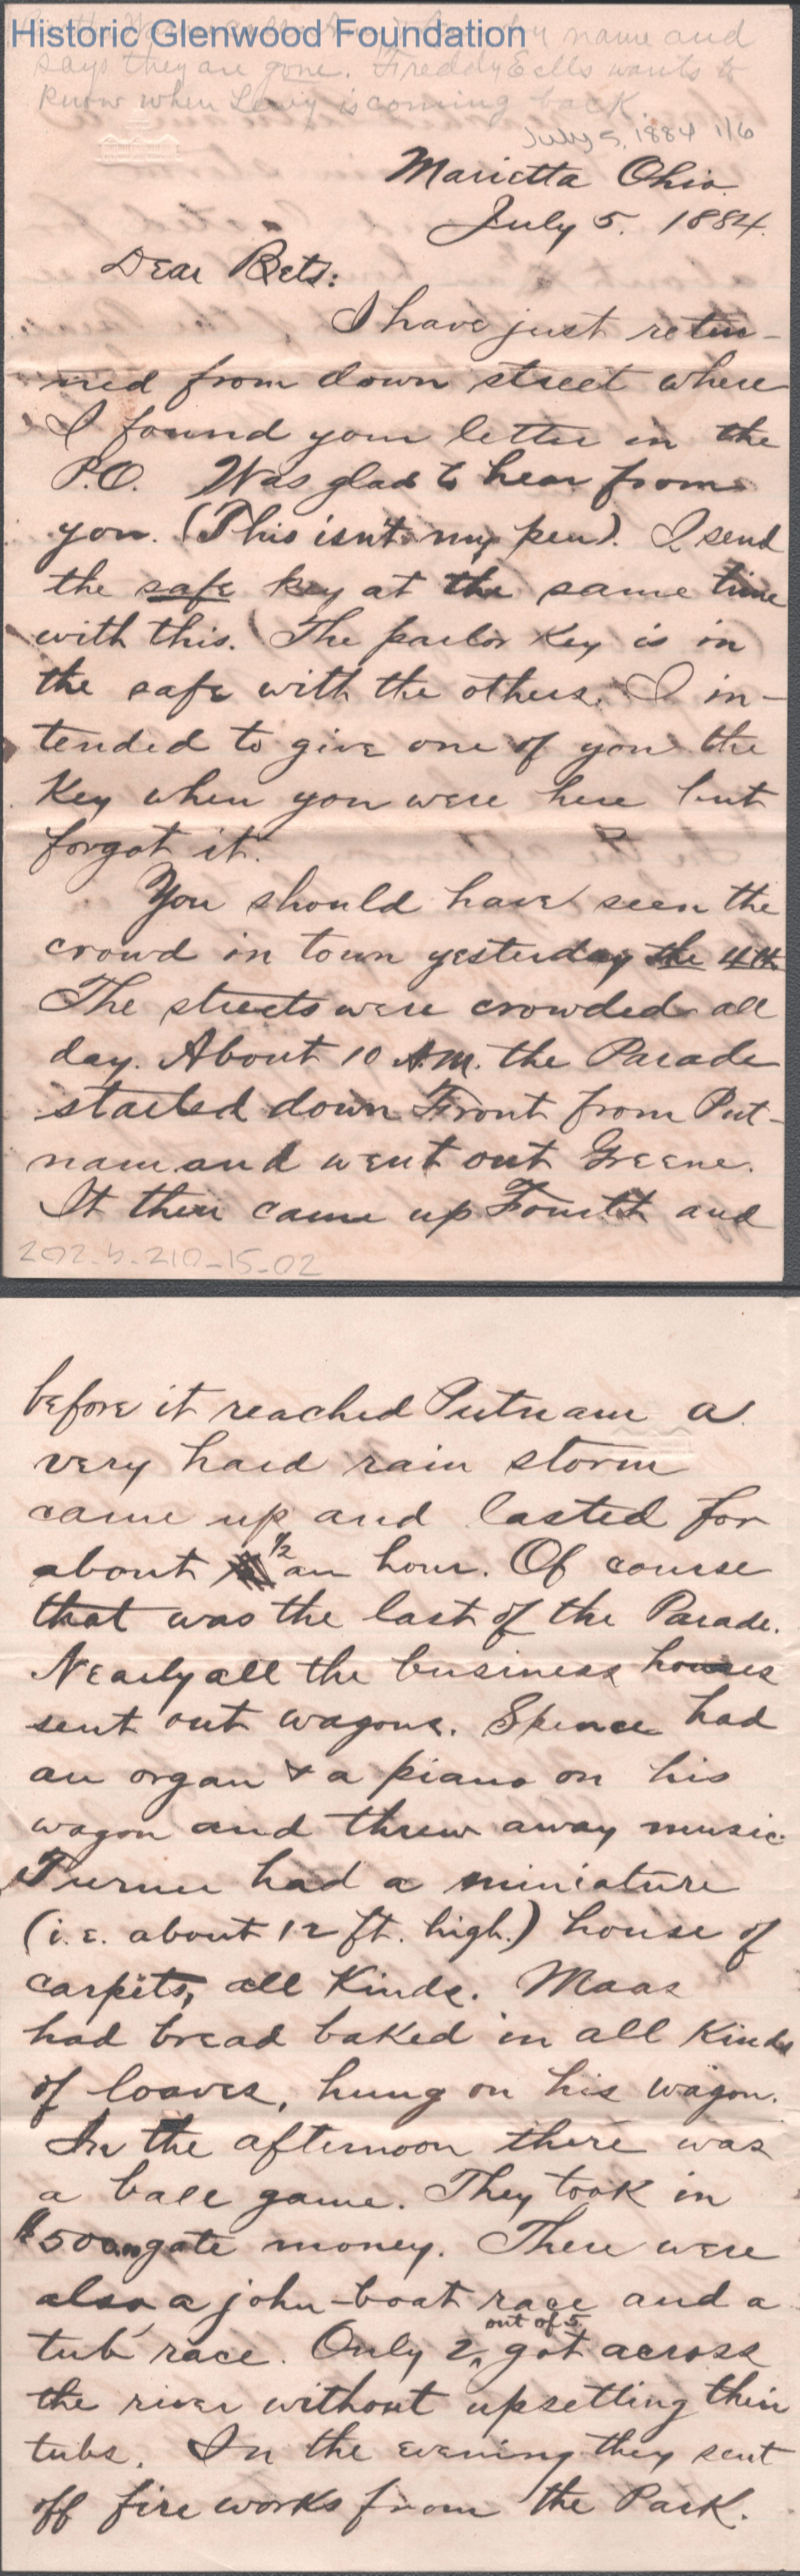 Historic Glenwood Foundation
name and
says they are gone. Freddy Eells wants to
know when Levy is coming back.
July 5, 1884 1/6
Marietta Ohio.
July 5. 1884.
Dear Bets:
I have just retur-
ned from down street where
I found your letter in the
P.O. Was glad to hear from
you. (This isn't my pen). I send
the safe key at the same time
with this. The parlor key is in
the safe with the others. I in-
tended to give one of you the
Key when you were here but
forgot it.
You should have seen the
crowd in town yesterday the 4th
The streets were crowded all
day. About 10 A.M. the Parade
started down Front from Put-
nam and went out Greene.
It then came up Fourth and
202-b-210-15-02
before it reached Putnam a
very hard rain storm
came up and lasted for
about 1/2 an hour. Of course
that was the last of the Parade.
Nearly all the business houses
sent out wagons. Spence had
an organ & a piano on his
wagon and threw away music.
Turner had a miniature
(i.e. about 12 ft. high.) house of
carpets, all Kinds. Maas
had bread baked in all Kinds
of loaves, hung on his wagon.
In the afternoon there was
a ball game. They took in
$500 gate money. There were
also a john-boat race and a
tub race. Only 2 out of 5 got across
the river without upsetting their
tubs. In the evening they sent
off fire works from the Park.